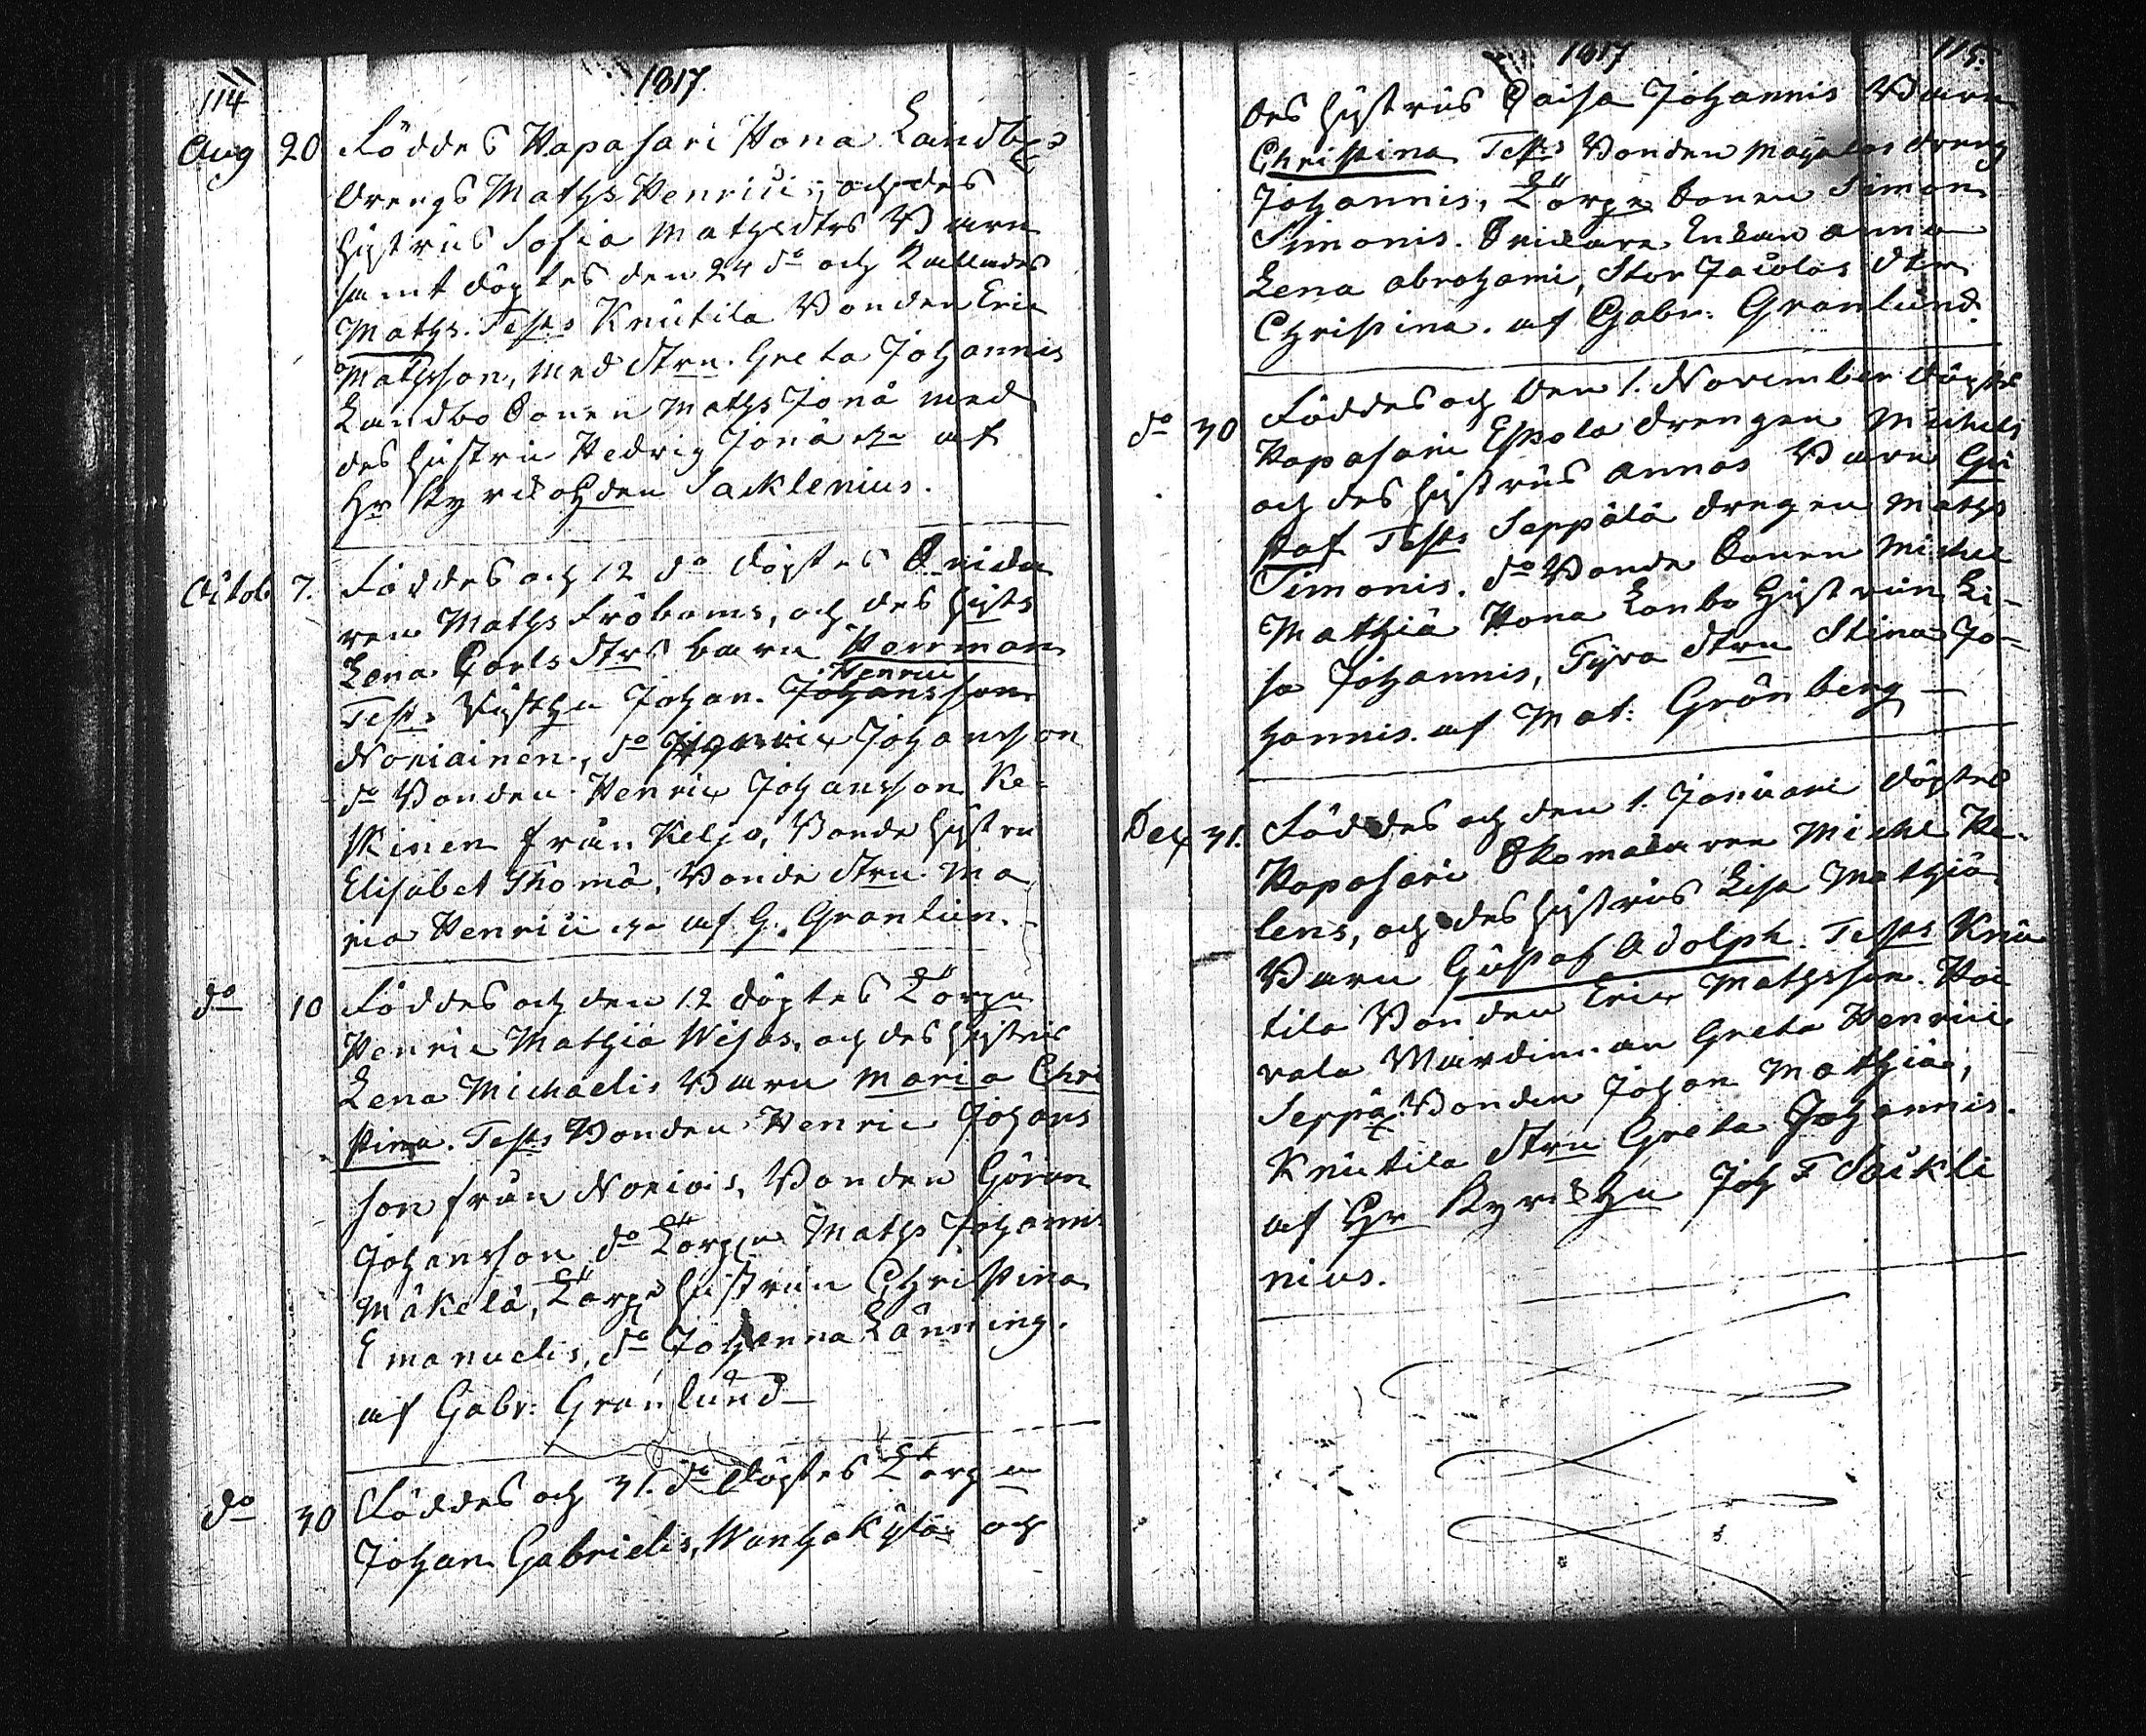 114
1817
Aug 20 Föddes Hapasari Hona Landb:s
Drengs Maths Henrici, och des
hustrus Sofia Mathsdtrs Barn
samt döptes den 24 do och Kallades
Maths. Test:s Knutila Bonden Eric
Mathsson, med Stru. Greta Johannis
Landbo Sonen Maths Jonä med
des hustru Hedvig Jonä af
Hr Kyrckohden Sacklenius.
Octob 7. Föddes och 12 do döptes
ren Maths Fröboms, och des hust:s
Lena Carls dtrs barn Herrman
Test:s Johan. Johansson Henrici
Noriainen, do Johansson
do Bonden Henric Johansson Ke-
skinen från Keljo, Bonde hustru
Elisabet Thomä, Bonde dtrn Ma
ria Henrici af G. Granlun.
do 10 Föddes och den 12 döptes Torpn
Henric Mathiä Wisas, och des hustrus
Lena Michaelis Barn Maria Chri
stina. Test:s Bonden Henric Johans
son från Noriais, Bonden Göran
Johansson do Torpn Maths Johannis
Mäkelä, Torp hustrun Christina
Emanuelis, do Johanna Länning.
af Gabr: Granlund
do 30 Föddes och 31. do döptes Torpn
Johan Gabrielis, Wanhakylä och
1817
115.
des hustrus Caisa Johannis Barn
Christina Test:s Bonden dreng
Johannis, Torpe Sonen Simon
Simonis. Enkan Anna
Lena Abrahami, Stor Jacolas dtr
Christina. af Gabr: Granlund.
do 30 Föddes och den 1. November döptes
Hapasari Eskola drengen Michels
och des hustrus Annas Barn Gu
staf Test:s Seppälä drengen Maths
Simonis. do Bonde Sonen Michel
Mathiä Hona Lanbo hustrun Li-
sa Johannis, Fyra dtrn Stina Jo-
hannis. af Mat: Grönberg
Dec 31. Föddes och den 1. Januari döptes
Hapasari Skomakaren Michel He-
lens, och des hustrus Lisa Mathiä
Barn Gustaf Adolph. Test:s Knu
tila Bonden Eric Mathsson. Hoi
rala Wärdinnan Greta Henrici
Seppä: Bonden Johan Mathiä,
Knutila Stru Greta Johannis.
af Hr Kyrckhn Joh F Säckle
nius.